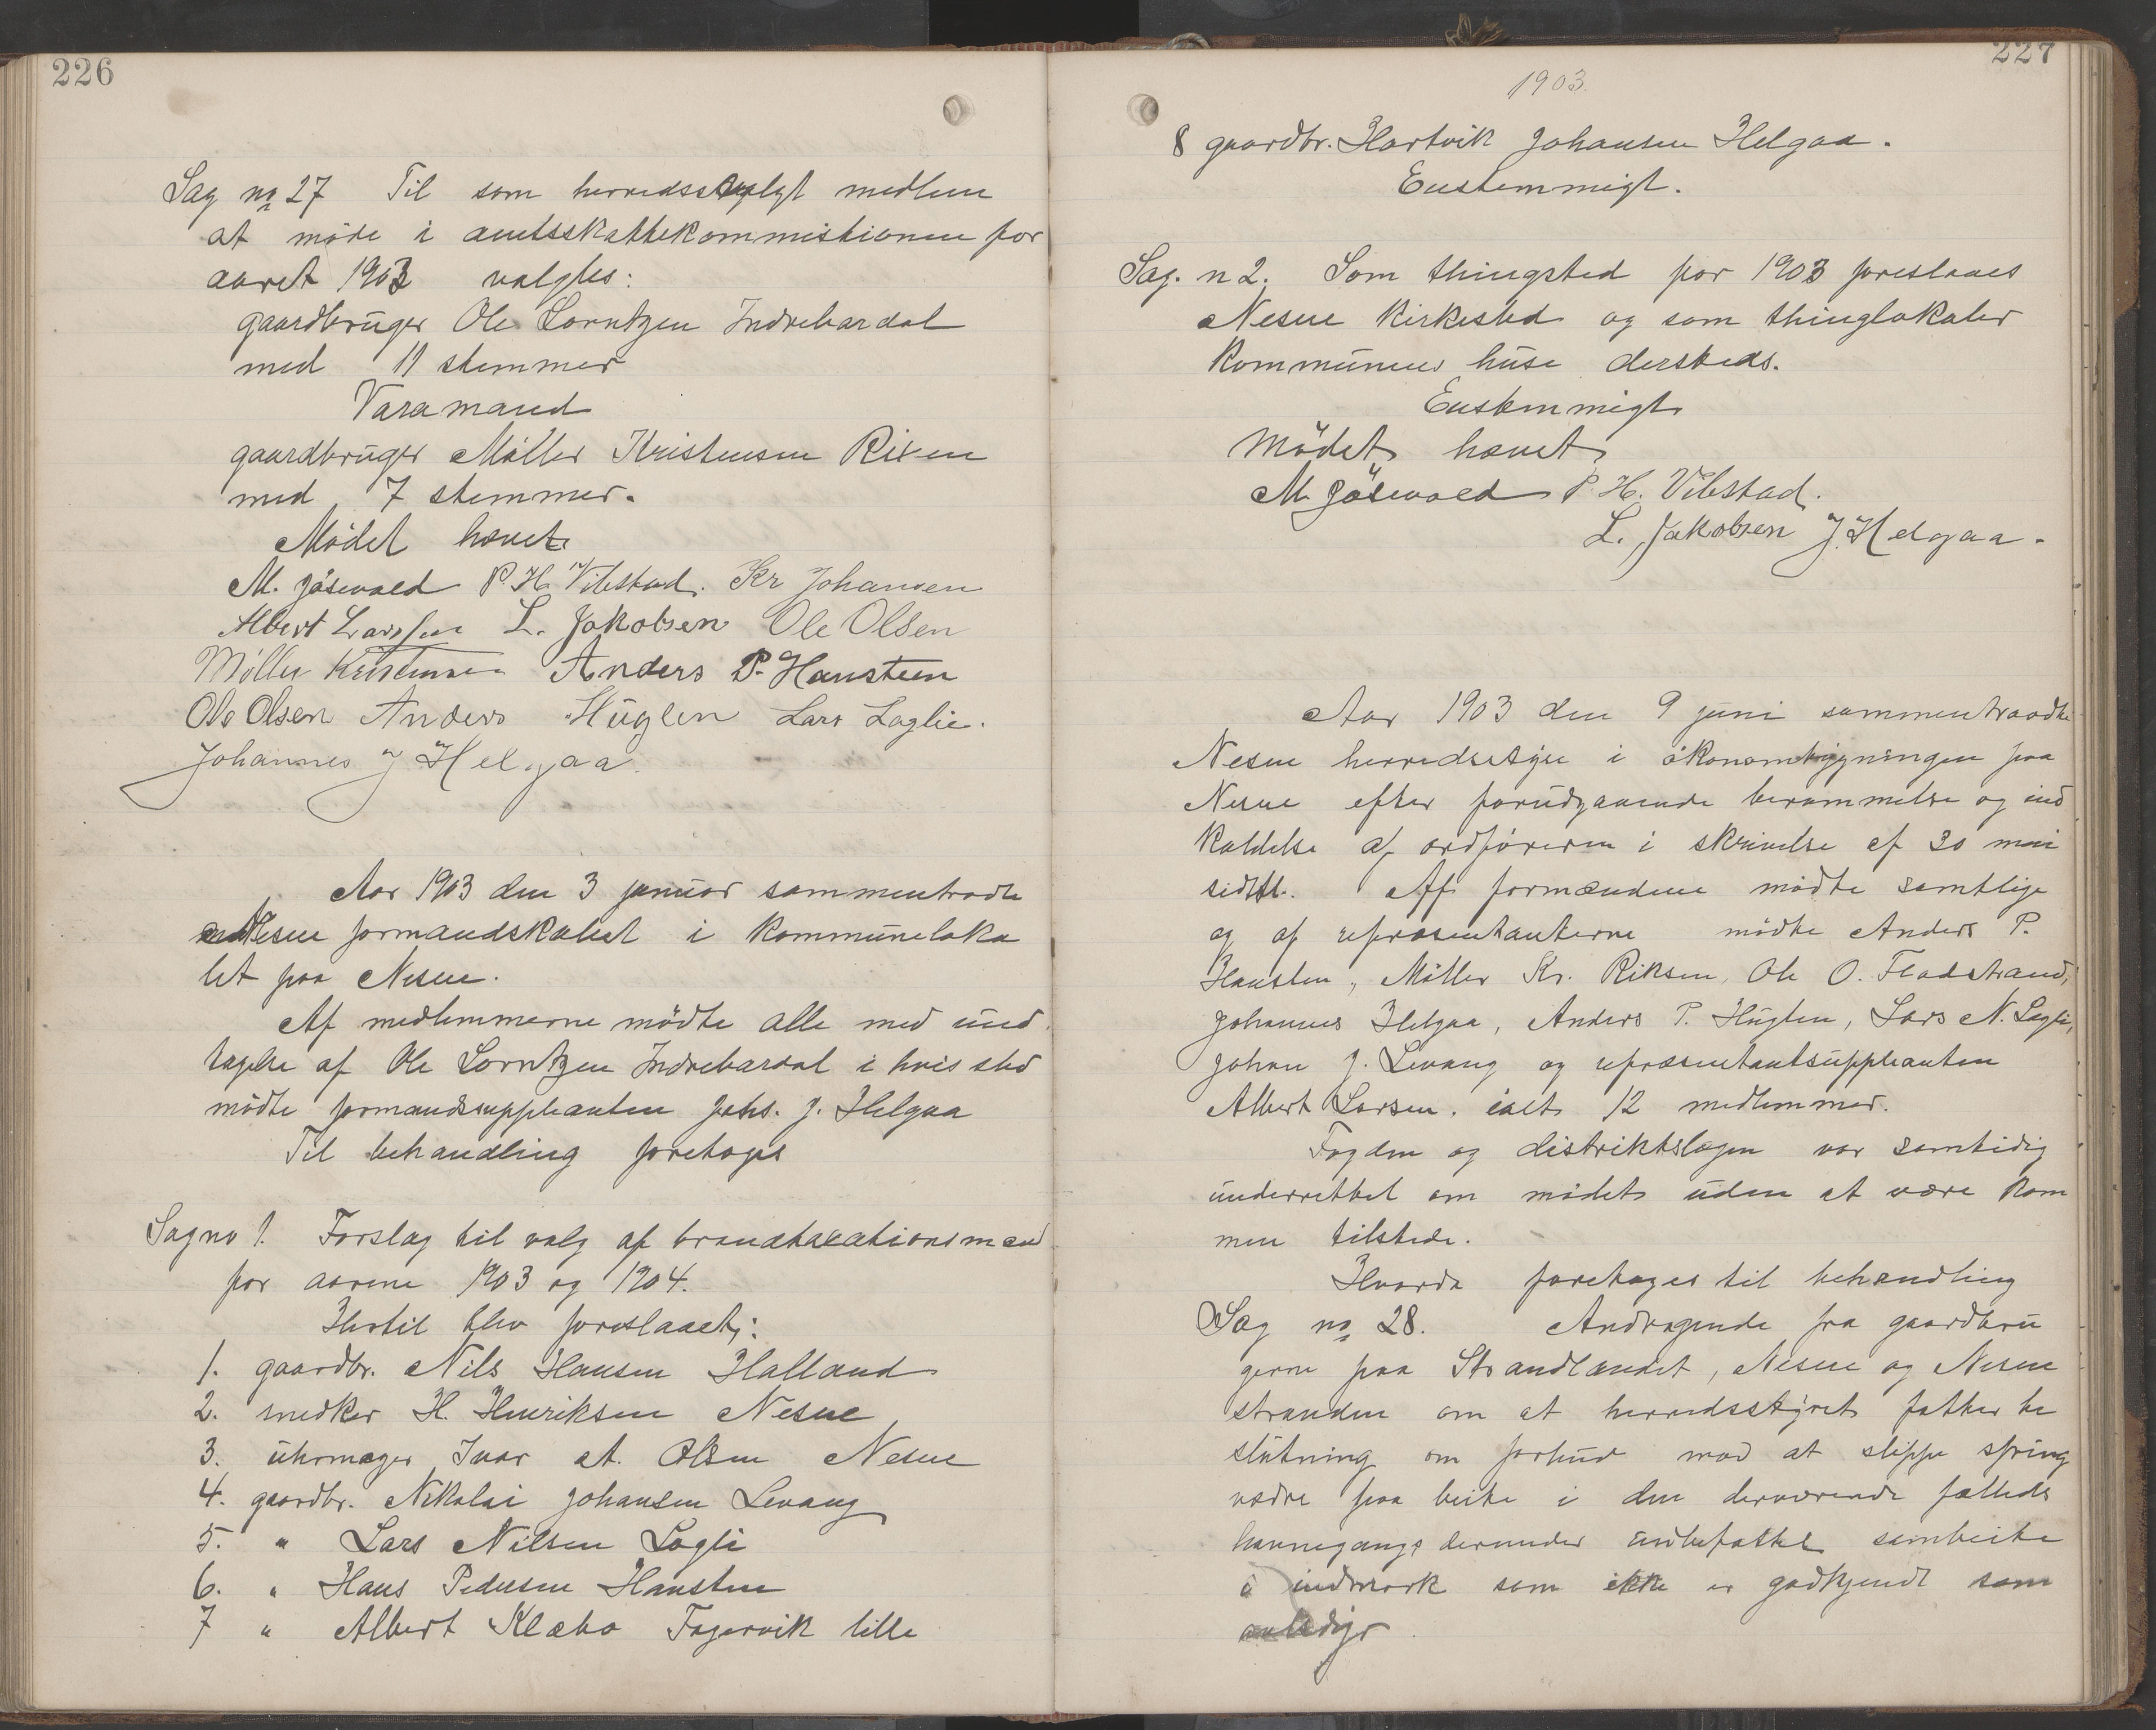 226
Sag no 27 Til som herredsvalgt medlem
at møde i amtsskattekommistionen for
aaret 1903 valgtes:
gaardbruger Ole Lorntzen Indrebardal
med 11 stemmer
Varamand
gaardbruger Møller Kristensen Risen
med 7 stemmer.
Mødet hævet
M. Jøsevold P. H. Vibstad. Kr Johansen
Albert Larssen L. Jakobsen Ole Olsen
Møller Kristensen Anders P. Hansteen
Ole Olsen Anders Huglen Lars Laglie.
Johannes J Helgaa.
Aar 1903 den 3 januar sammentradte
Nesne formandskabet i kommuneloka
let paa Nesne.
Af medlemmerne mødte alle med und
tagelse af Ole Lorntzen Indrebardal i hvis sted
mødte formandssuppleanten Johs. J. Helgaa
Til behandling foretoges
Sag no 1. Forslag til valg af brandtaxationsmænd
for aarene 1903 og 1904.
Hertil blev foreslaaet:
1. gaardbr. Nils Hansen Halland
2. snedker H. Henriksen Nesne
3. uhrmager Ivar A. Olsen Nesne
4. gaardbr. Nikolai Johansen Levang
5. " Lars Nilsen Lagli
6. " Hans Pedersen Hansten
7 " Albert Klæbo Fagervik lille
227
1903.
8 gaardbr. Hartvik Johansen Helgaa.
Enstemmigt.
Sag. n 2. Som thingsted for 1903 foreslaaes
Nesne kirkested og som thinglokaler
kommunens huse dersteds.
Enstemmigt
Mødet hævet
M. Jøsevold P. H. Vibstad.
L. Jakobsen J. Helgaa.
Aar 1903 den 9 juni sammentraadte
Nesne herredsstyre i økonomibygningen paa
Nesne efter forudgaaende berammelse og ind
kaldelse af ordføreren i skrivelse af 30 mai
sidstl. Af formændene mødte samtlige
og af repræsentanterne mødte Anders P.
Hansten, Møller Kr. Riksen, Ole O. Fladstrand,
Johannes Helgaa, Anders P. Huglen, Lars N. Lagli,
Johan J. Levang og repræsentantsuppleanten
Albert Larsen. ialt 12 medlemmer.
Fogden og distriktslægen var samtidig
underrettet om mødet uden at være kom
men tilstede.
Hvorda foretoges til behandling
Sag no 28. Andragende fra gaardbru
gerne paa Strandlandet, Nesne og Nesne
stranden om at herredsstyret fatter be
slutning om forbud mod at slippe spring
vædre paa beite i den derværende fælleds
havnegang derunder indbefattet sambeite
i indmark som ikke er godkjendt som